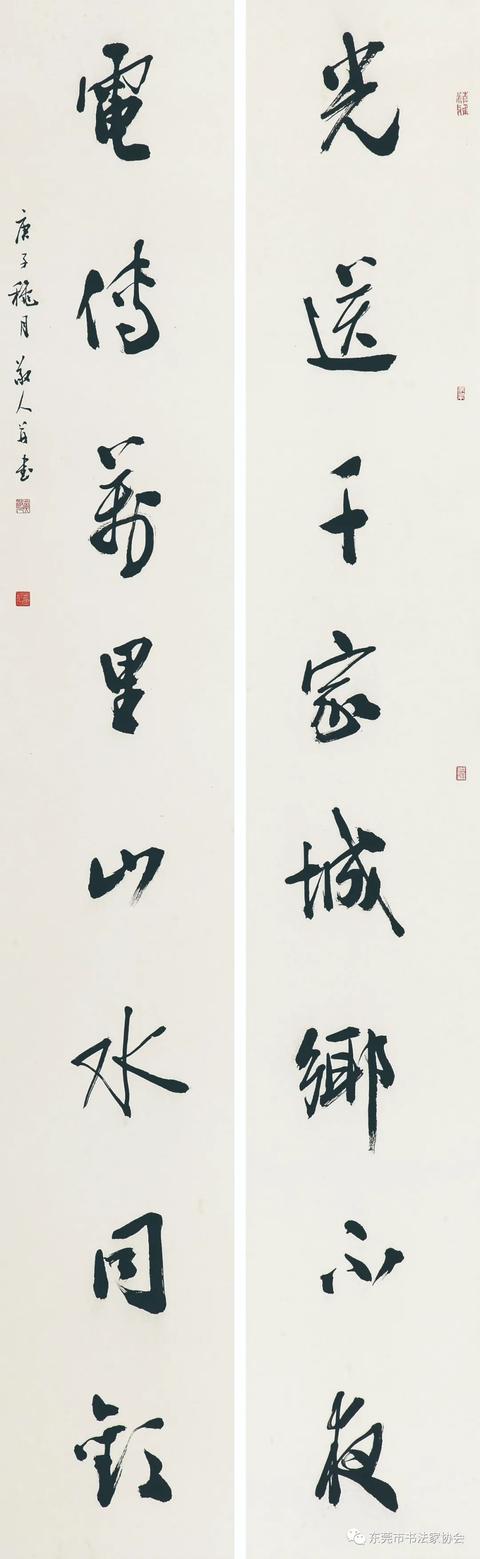 光送千家城鄉不夜
電傳萬里山水同歡
庚子穐月敬人并書
东莞市书法家协会